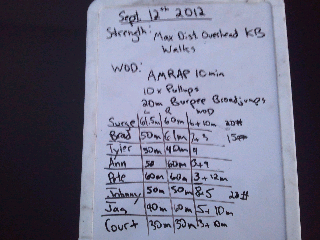 Sept. 12th 2012
Strength: Max Dist. Overhead KB
Walks
WOD: AMRAP 10 min
10 x Pullups
20m Burpee Broadjumps
WOD
Surge 61.5m 60m 6+10m 20#
Brad 50m 61m 15#
Tyler 50m 40m 4
Ann 50 60m 3+9
Pete 60m 60m 3+12m
Johnny 50m 50m 8.5 20#
Jag 40m 60m 5+10m
Court 30m 30m 5+10m